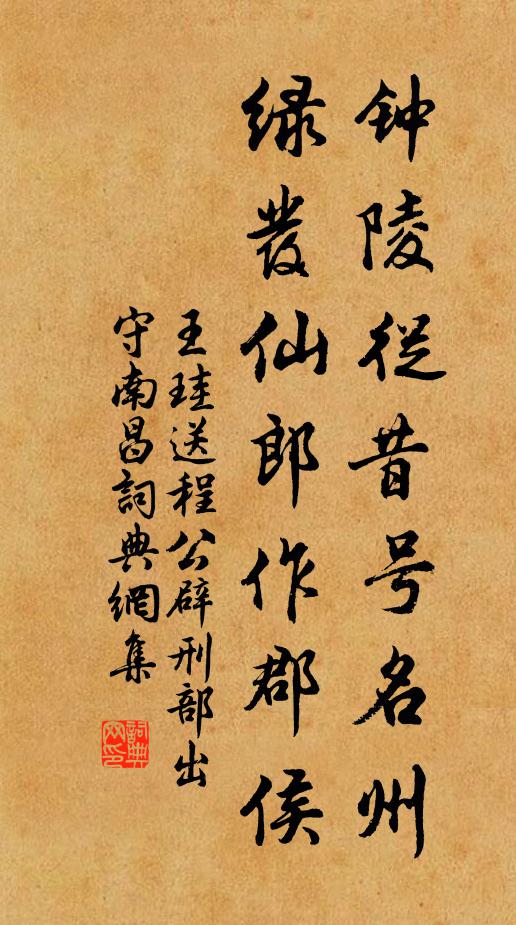 钟陵從昔号名州
绿发仙郎作郡侯
王珪送程公辟刑部出
守南昌詞典網集
詞典網印